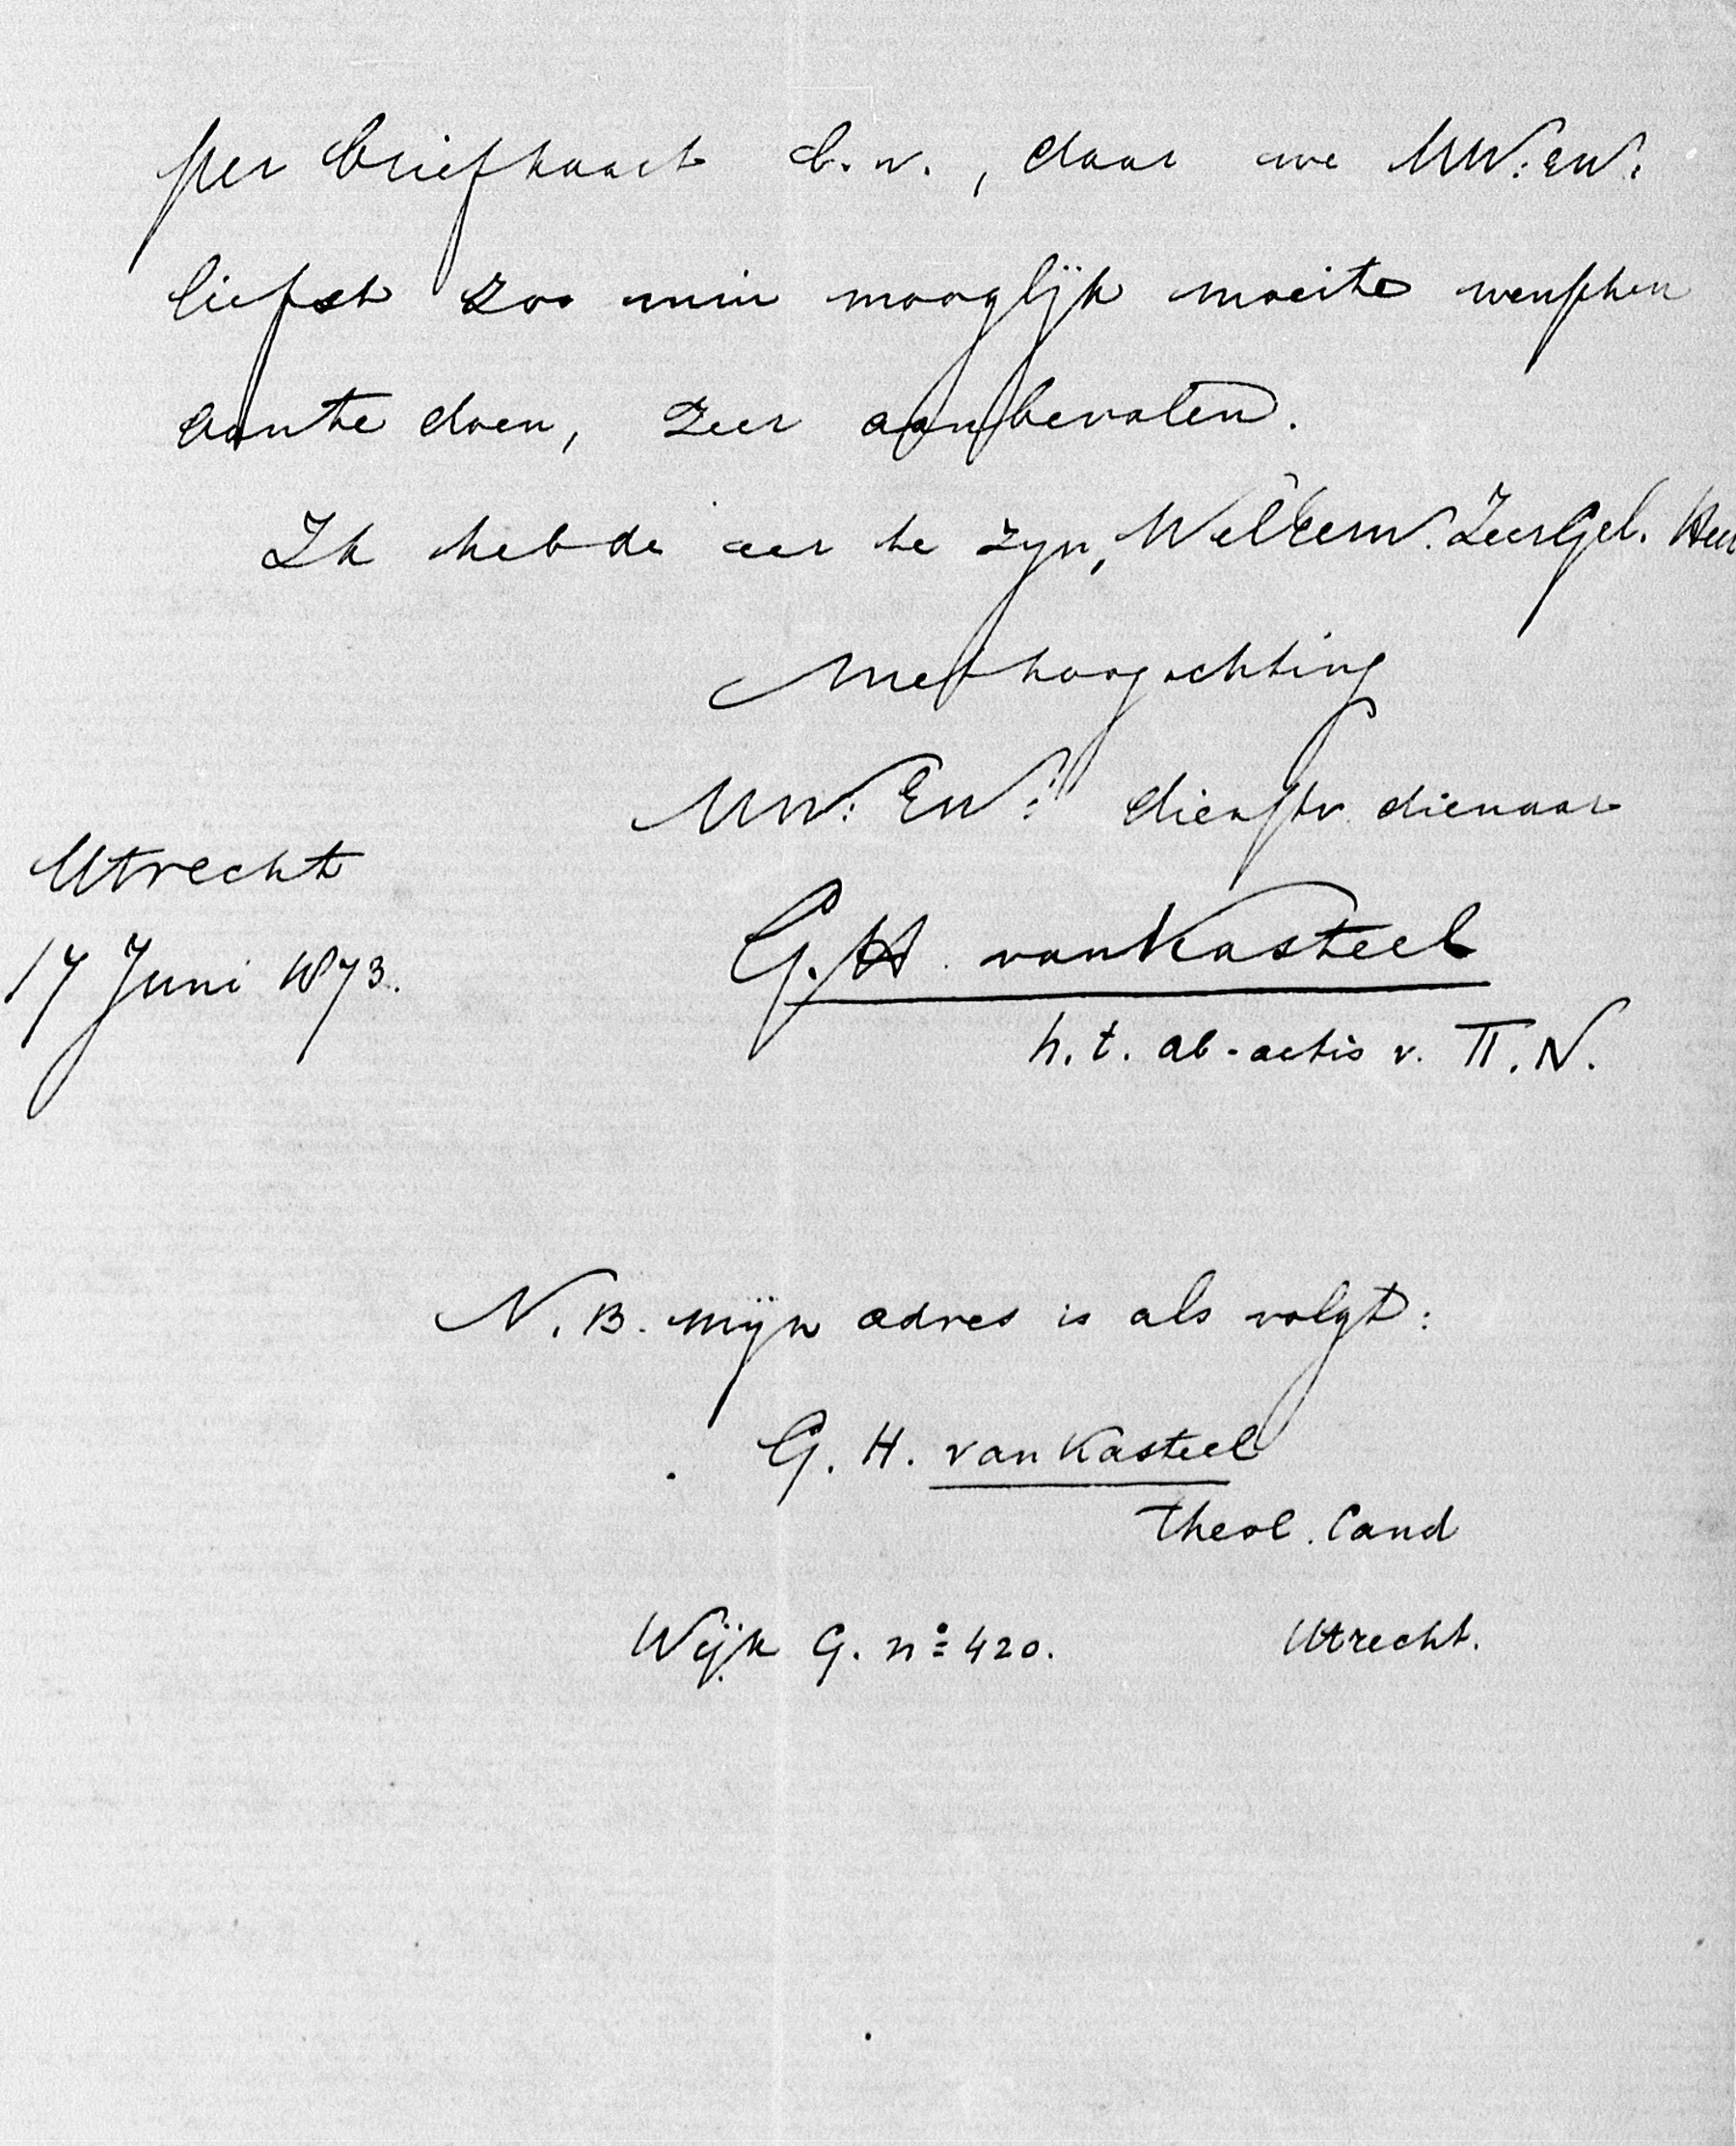 per briefkaart b.v., daar we UW:EW:
liefst zoo min mooglijk moeite wenschen
aante doen, zeer aanbevolen.
Ik heb de eer te zyn, WelEerw. ZeerGel. Heer
Met hoogachting
UW: EW: dienstv. dienaar
Utrecht
17 Juni 1873.
G. H. van Kasteel
h. t. ab-actis v. Π. N.
N. B. mijn adres is als volgt:
G. H. van Kasteel
Theol. Cand
Wijk G. no 420. Utrecht.